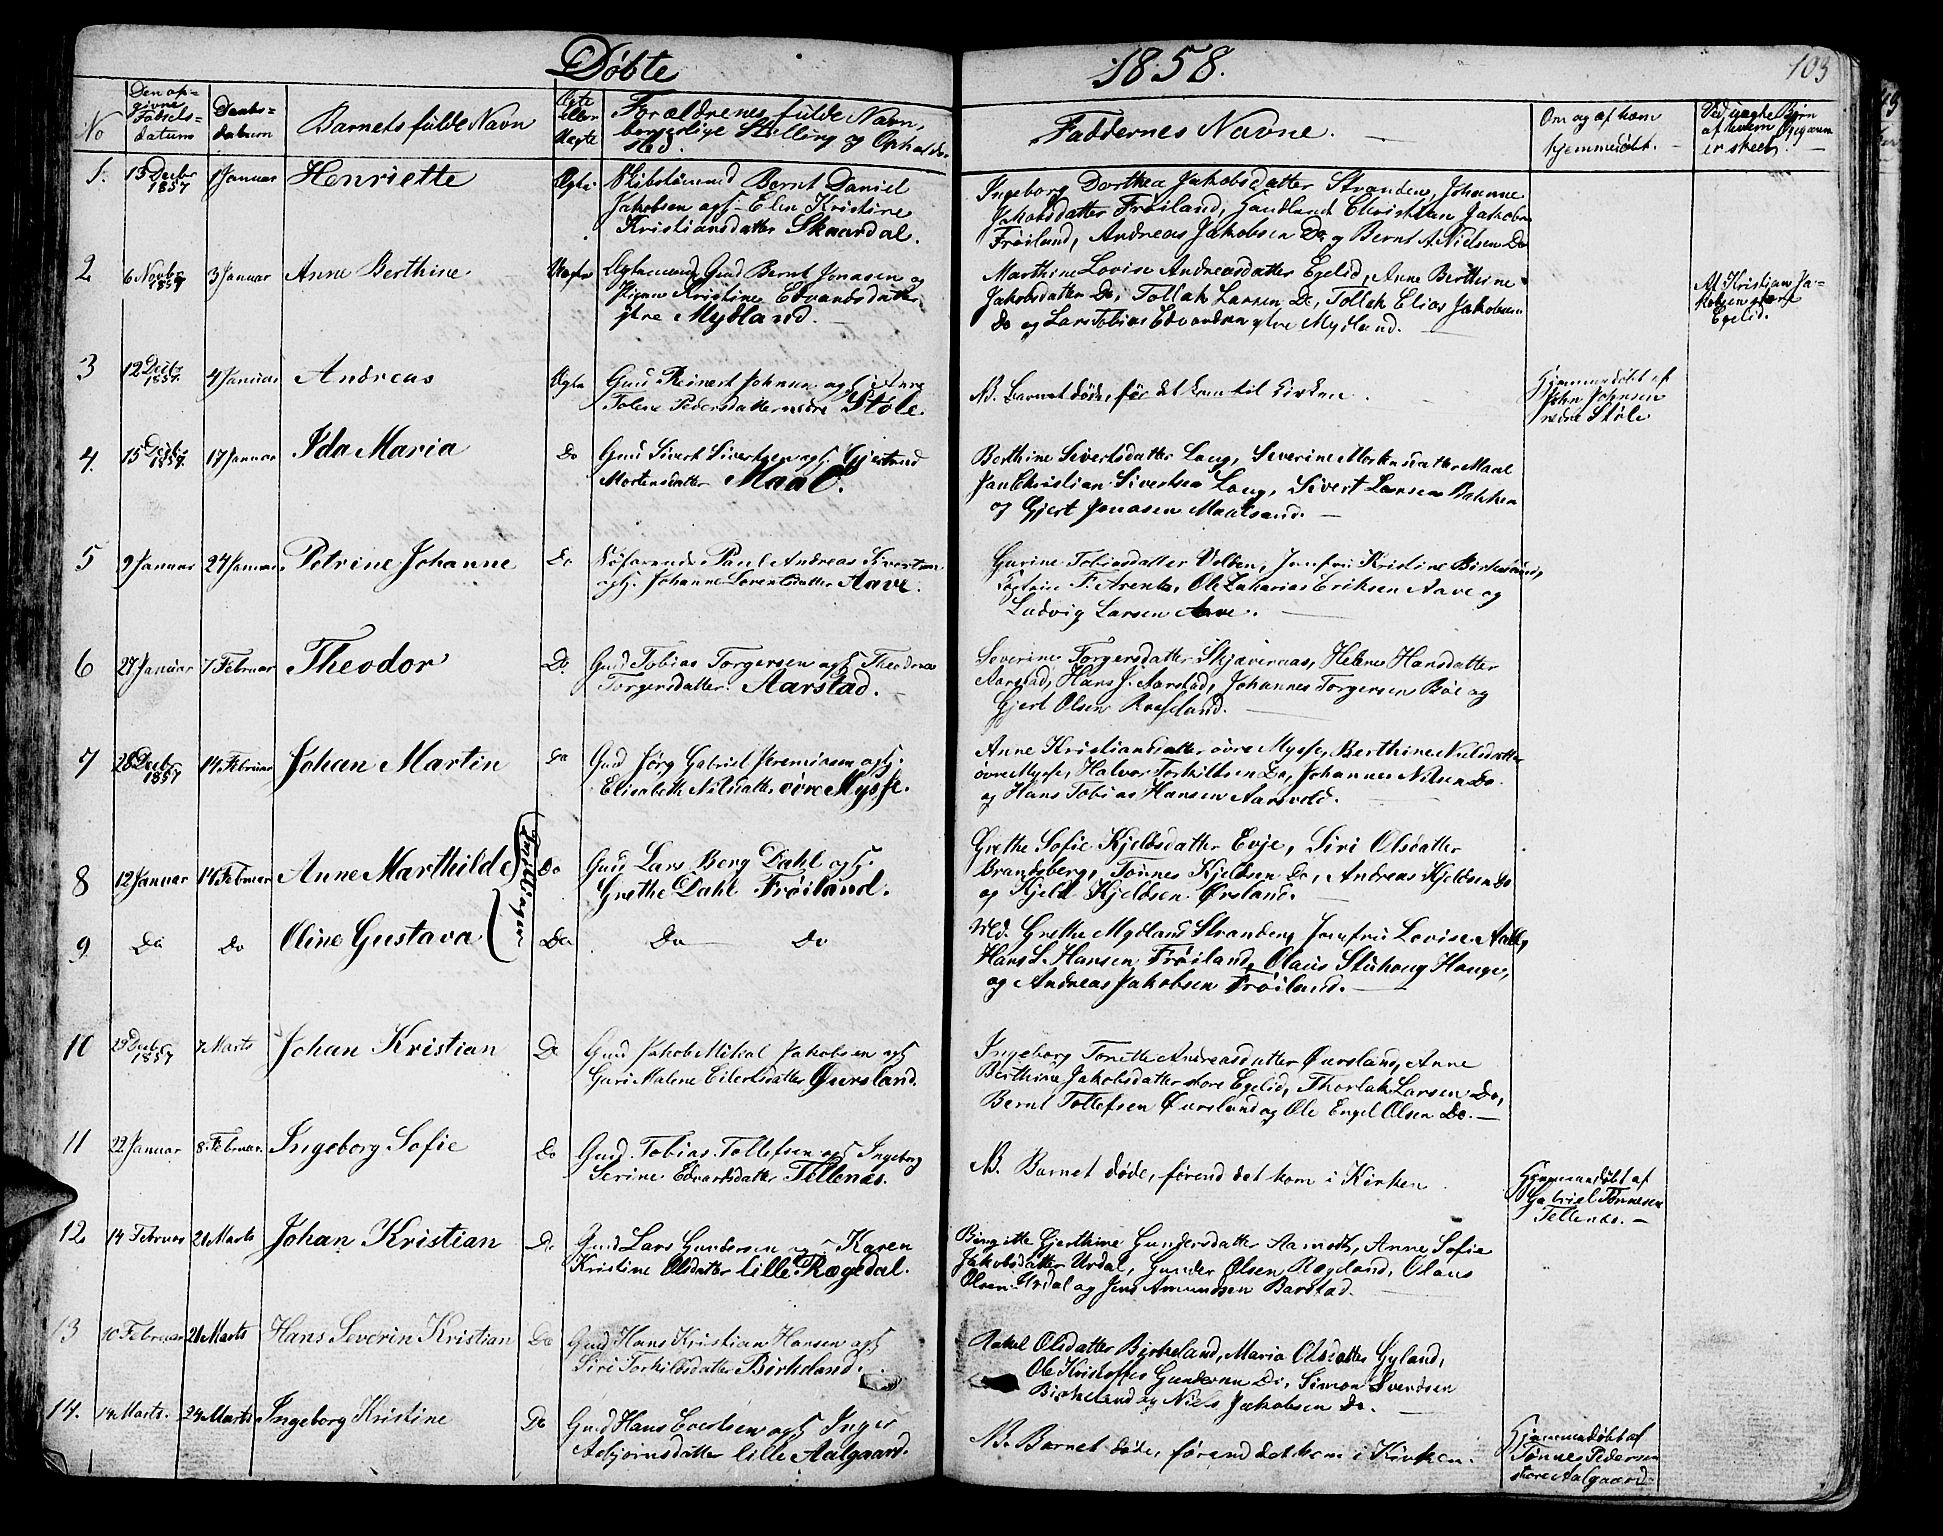 Døbte
1858.
103
No
Den op-
givne
Fødsels-
datum
Daabs-
datum
Barnets fulde Navn
Ægte
eller
Uægte
Forældrenes fulde Navn,
borgerlige Stilling og Opholds-
sted.
Faddernes Navne.
Om og af hvem
hjemmedøbt.
Ved uægte Børn
af hvem Opgaven
er skeet.
1.
13 Decbr
1857
1 Januar
Henriette
Ægte
Bernt Daniel
Jakobsen og Elen Kristine
Kristiansdatter Skaardal.
Ingeborg Dorthea Jakobsdatter Stranden, Johanne
Jakobsdatter Frøiland, Christian Jakobsen
Frøiland, Andreas Jakobsen Do og Bernt A. Nielsen Do
2
6 Novbr
1857
3 Januar
Anne Berthine
Uægte
Bernt Jonasen og
Pigen Kristine Edvardsdatter
ytre Mydland.
Marthine Lovise Andreasdatter Egelid, Anne Berthine
Jakobsdatter Do, Tollak Larsen Do, Tollak Elias Jakobsen
Do og Lars Tobias Edvardsen ytre Mydland.
Af Kristian Ja-
kobsen store
Egelid.
3
12 Decbr
1857.
4 Januar
Andreas
Ægte
Gmd Reinert Johnsen og H. Anne
Tolene Pedersdatter nedre Støle.
NB. Barnet døde, før det kom til Kirken.
Hjemmedøbt af
John Johnsen
nedre Støle
4.
15 Decbr
1857.
17 Januar
Ida Maria
Do
Gmd Sivert Sivertsen og H. Gjertrud
Mortensdatter Maal.
Berthine Sivertsdatter Loug, Severine Mortensdatter Maal
Jan Christian Sivertsen Loug, Sivert Larsen Bakken
og Gjert Jonasen Maalsand.
5
9 Januar
24 Januar
Petrine Johanne
Do
Søfarende Paul Andreas Sivertsen
og H. Johanne Lorentsdatter Aave.
Gurine Tobiasdatter Volden, Jomfru Kristine Birkeland,
F. Arentz, Ole Zakarias Eriksen Aave og
Ludvig Larsen Aave.
6
27 Januar
7 Februar
Theodor
Do.
Gmd Tobias Torgersen og H. Theodora
Torgersdatter Aarstad.
Severine Torgersdatter Skjævernas, Helene Hansdatter
Aarstad, Hans J. Aarstad, Johannes Torgersen Bøe og
Gjert Olsen Rusland.
7
28 Decbr
1857
14 Februar
Johan Martin
Do
Gmd Jørg Gabriel Jeremiasen og H.
Elisabeth Nilsdatter øvre Mysse.
Anne Kristiansdatter øvre Mysse, Berthine Nilsdatter
øvre Mysse, Halvor Torkildsen Do, Johannes Nilsen Do
og Hans Tobias Hansen Aarsvold.
8
12 Januar
14 Februar
Anne Marthilde
Tvillinger
Do
Gmd Lars Berg Dahl og H.
Grethe Dahl Frøiland.
Grethe Sofie Kjeldsdatter Evje, Siri Olsdatter
Brandsberg, Tønnes Kjeldsen Do, Andreas Kjeldsen Do
og Kjeld Kjeldsen Ørsland.
9
Do
Do
Oline Gustava
Do
Do
Do
Md. Grethe Mydland Stranden, Jomfru Lovise Aalby,
Hans L. Hansen Frøiland, Olaus Stuhaug Hauge,
og Andreas Jakobsen Frøiland.
10
29 Decbr
1857
7 Marts
Johan Kristian
Do
Gmd Jakob Mikal Jakobsen og H
Guri Malene Eilertsdatter Øursland.
Ingeborg Tonette Andreasdatter Øursland, Anne
Berthine Jakobsdatter store Egelid, Thorlak Larsen Do,
Bernt Tollefsen Øursland og Ole Engel Olsen Do.
11
22 Januar
8 Februar.
Ingeborg Sofie
Do
Gmd. Tobias Tollefsen og H Ingeborg
Serine Edvartsdatter Tellenæs.
NB. Barnet døde, førend det kom i Kirken
Hjemmedøbt af
Gabriel Tønnesen
Tellenæs.
12
14 Februar
21 Marts
Johan Kristian
Do
Gmd Lars Gundersen og H Karen
Kristine Olsdatter lille Rægedal.
Birgitte Gjerthine Gundersdatter Aamoth, Anne Sofie
Jakobsdatter Urdal, Gunder Olsen Rægeland, Olaus
Olsen Urdal og Jens Amundsen Barstad.
13
10 Februar
21 Marts
Hans Severin Kristian
Do
Gmd Hans Kristian Hansen og H
Siri Torkildsdatter Birkeland.
Rakel Olsdatter Birkeland, Maria Olsdatter Gyland,
Ole Kristoffer Gundersen Do, Simon Svendsen
Birkeland og Niels Jakobsen Do.
14.
14 Marts.
24 Marts
Ingeborg Kristine
Do
Gmd Hans Evertsen og H Inger
Asbjørnsdatter lille Aalgaard.
NB. Barnet døde, førend det kom i Kirken.
Hjemmedøbt af
Tønnes Pedersen
store Aalgaard